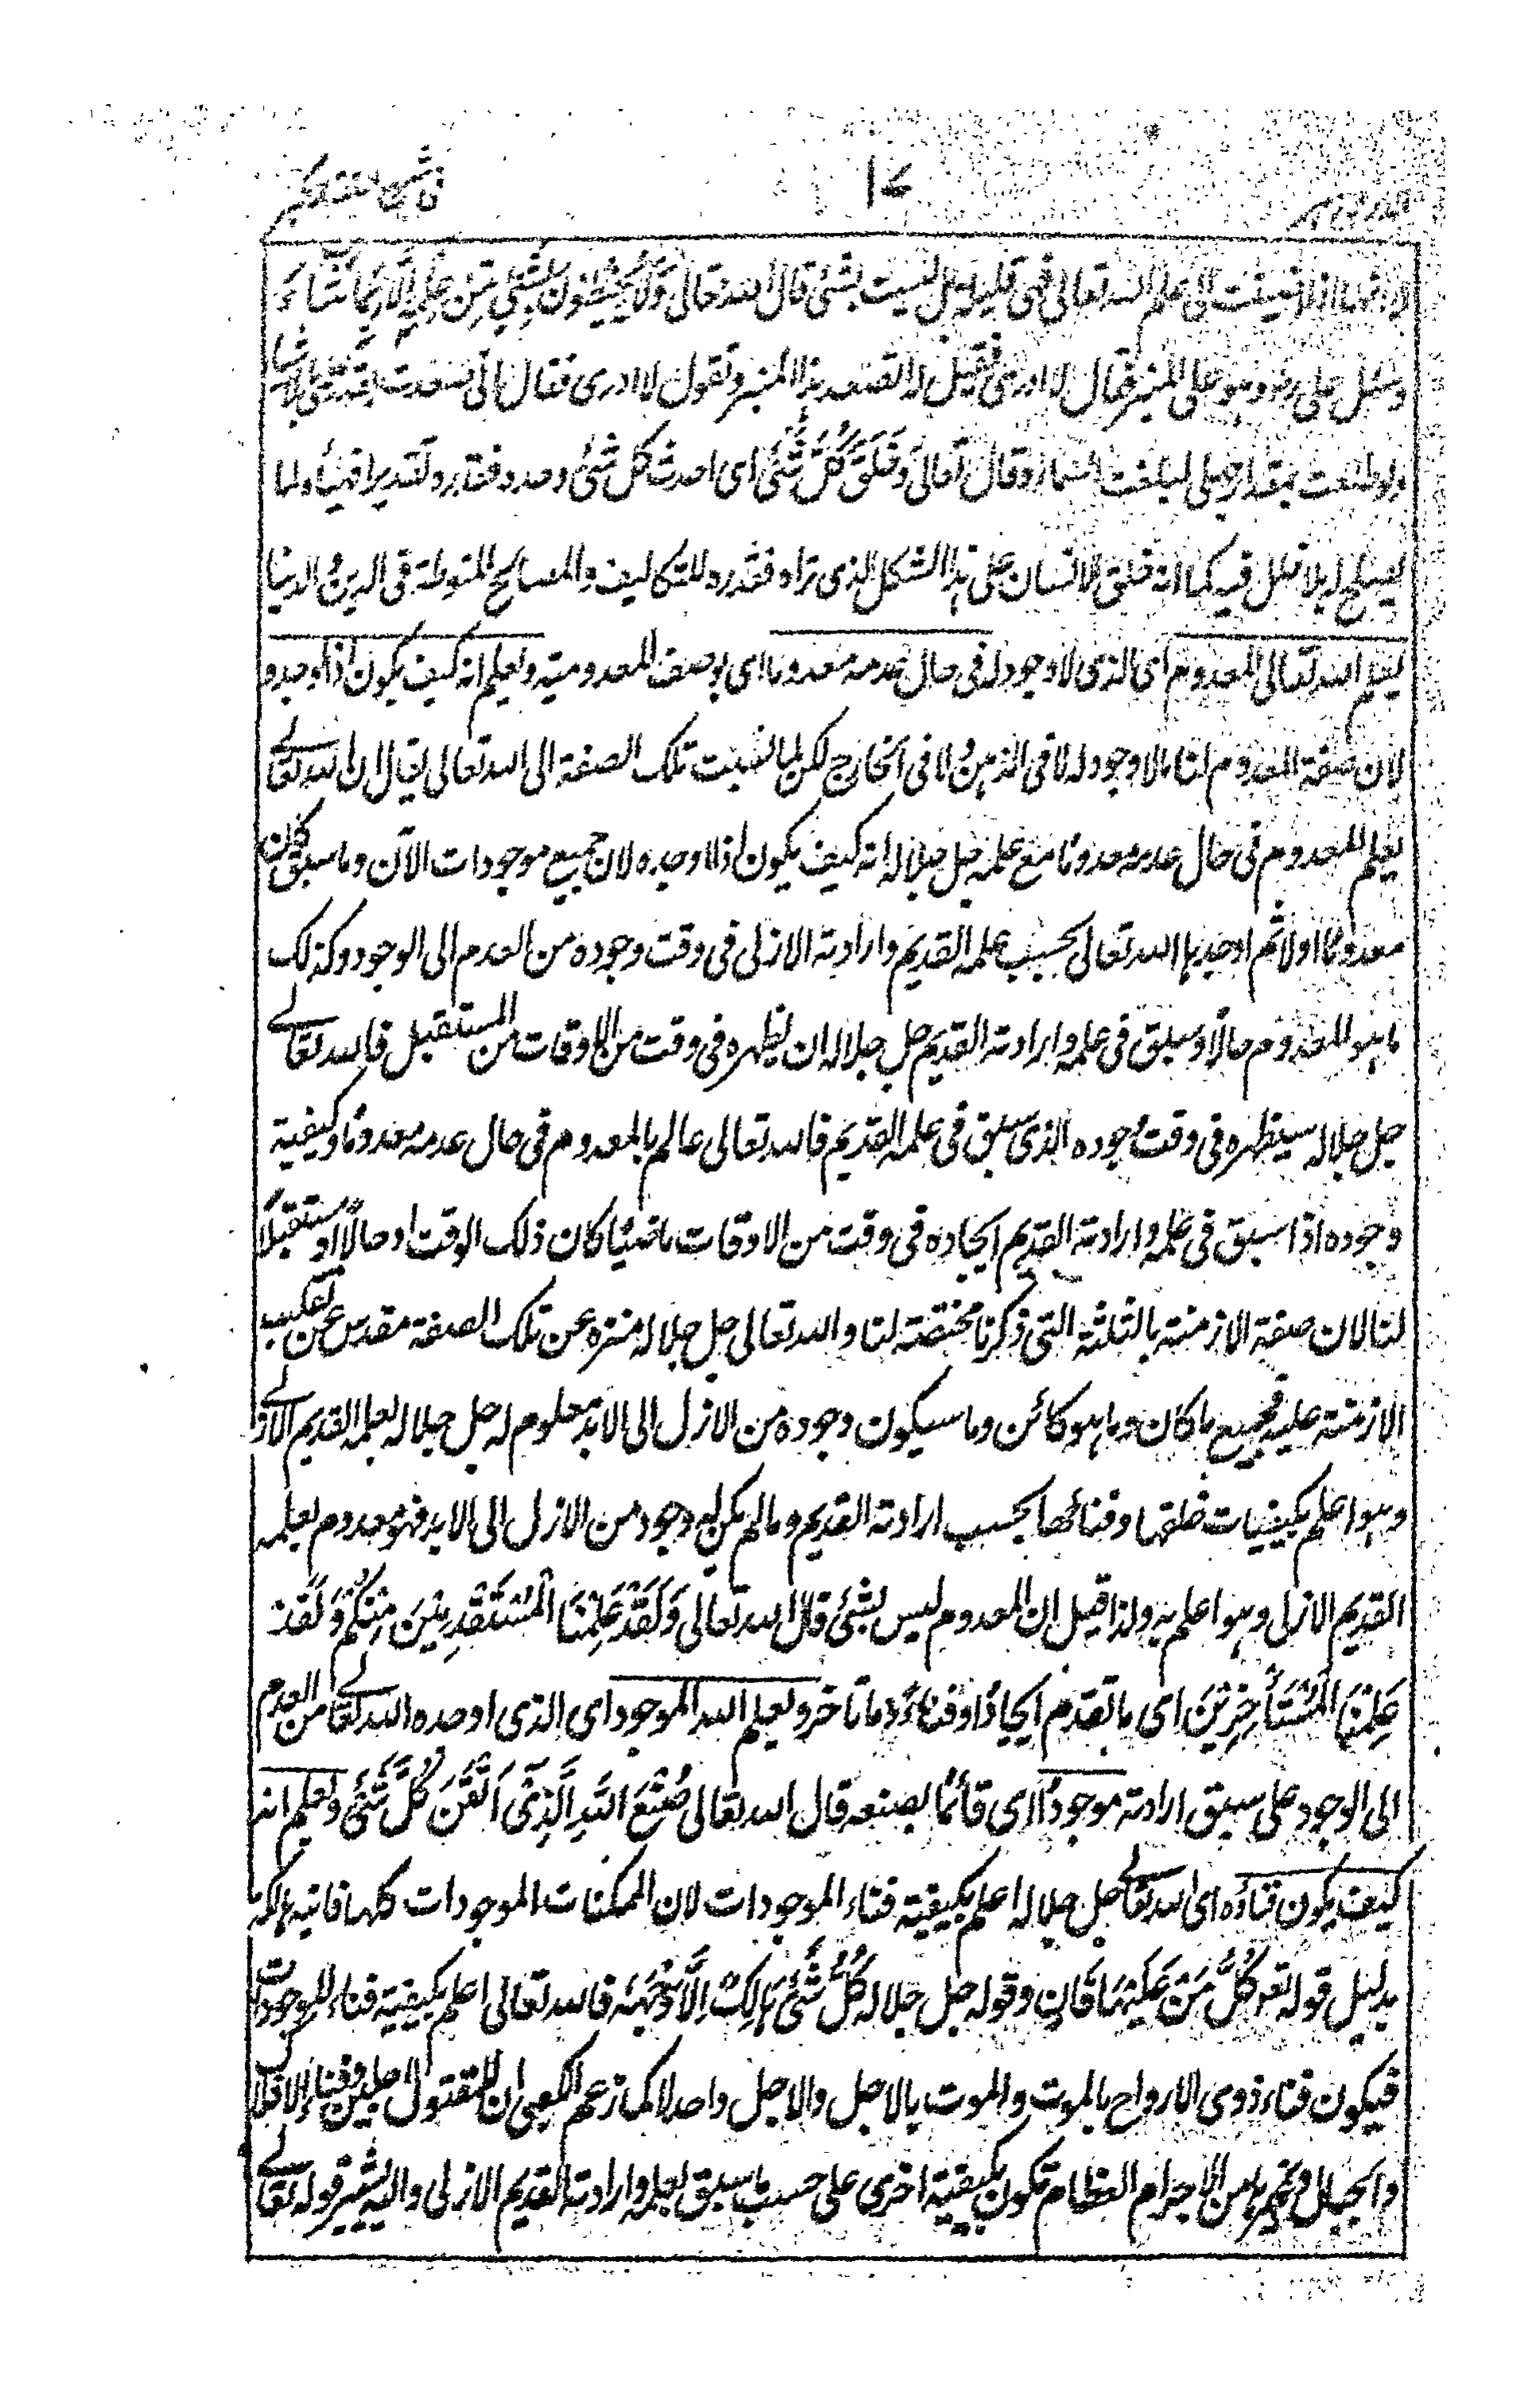 ١٧
اذا اضيفت الى علم الله تعالى فهى قليل بل ليست بشئ قال الله تعالى وَلَا يُحِيْطُوْنَ بِشَيْءٍ مِّنْ عِلْمِهٖ اِلَّا بِمَا شَاءَ
وسئل على رض وهو على المنبر فقال لا ادرى فقيل له اتصعد هذا المنبر وتقول لا ادرى فقال انى صعدت
ولو طلعت بمقدار جهلى لبلغت السماء وقال تعالى وَخَلَقَ كُلَّ شَيْءٍ اى احدث كل شئ وحده فقدره تقديرا فهيأه لما
يصلح له بلا خلل فيه كما انه خلق الانسان على هذا الشكل الذى تراه فقدره للتكاليف والمصالح المنوطة فى الدين والدنيا
يعلم الله تعالى المعدوم اى الذى لا وجود له فى حال عدمه معدوما اى بوصف المعدومية ويعلم انه كيف يكون اذا اوجده
لان صفة المعدوم لنا ما لا وجود له لا فى الذهن ولا فى الخارج لكن لما نسبت تلك الصفة الى الله تعالى يقال ان الله تعالى
يعلم المعدوم فى حال عدمه معدومًا مع علمه جل جلاله انه كيف يكون اذا اوجده لان جميع موجودات الآن وما سبق كان
معدومًا اولا ثم اوجدها الله تعالى بحسب علمه القديم وارادته الازلى فى وقت وجوده من العدم الى الوجود وكذلك
ما هو المعدوم حالًا وسبق فى علمه وارادته القديم جل جلاله ان يظهره فى وقت من الاوقات من المستقبل فالله تعالى
جل جلاله سيظهره فى وقت وجوده الذى سبق فى علمه القديم فالله تعالى عالم بالمعدوم فى حال عدمه معدومًا وكيفية
وجوده اذا سبق فى علمه وارادته القديم ايجاده فى وقت من الاوقات ماضيًا كان ذلك الوقت او حالًا او مستقبلًا
لنا لان صفة الازمنة بالثلثة التى ذكرنا مختصة لنا والله تعالى جل جلاله منزه عن تلك الصفة مقدس عن تعكيب
الازمنة عليه فجميع ما كان وما هو كائن وما سيكون وجوده من الازل الى الابد معلوم له جل جلاله بعلمه القديم الازلى
وهو اعلم بكيفيات خلقها وفنائها بحسب ارادته القديم وما لم يكن له وجود من الازل الى الابد فهو معدوم بعلمه
القديم الازلى وهو اعلم به ولذا قيل ان المعدوم ليس بشئ قال الله تعالى وَلَقَدْ عَلِمْنَا الْمُسْتَقْدِمِيْنَ مِنْكُمْ وَلَقَدْ
عَلِمْنَا الْمُسْتَأْخِرِيْنَ اى ما تقدم ايجادًا وفناءً وما تاخر ويعلم الله الموجود اى الذى اوجده الله تعالى من العدم
الى الوجود على سبق ارادته موجودًا اى قائمًا بصنعه قال الله تعالى صُنْعَ اللهِ الَّذِيْ اَتْقَنَ كُلَّ شَيْءٍ ويعلم انه
كيف يكون فناؤه اى الله تعالى جل جلاله اعلم بكيفية فناء الموجودات لان الممكنات الموجودات كلها فانية هالكة
بدليل قوله تعر كُلُّ مَنْ عَلَيْهَا فَانٍ وقوله جل جلاله كُلُّ شَيْءٍ هَالِكٌ اِلَّا وَجْهَهُ فالله تعالى اعلم بكيفية فناء الموجودات
فيكون فناء ذوى الارواح بالموت والموت بالاجل والاجل واحد لا كما زعم الكعبى ان للمقتول اجلين وفناء الافلاك
والجبال وغيرها من الاجرام العظام تكون بكيفية اخرى على حسب ما سبق بعلمه وارادته القديم الازلى واليه يشير قوله تعالى